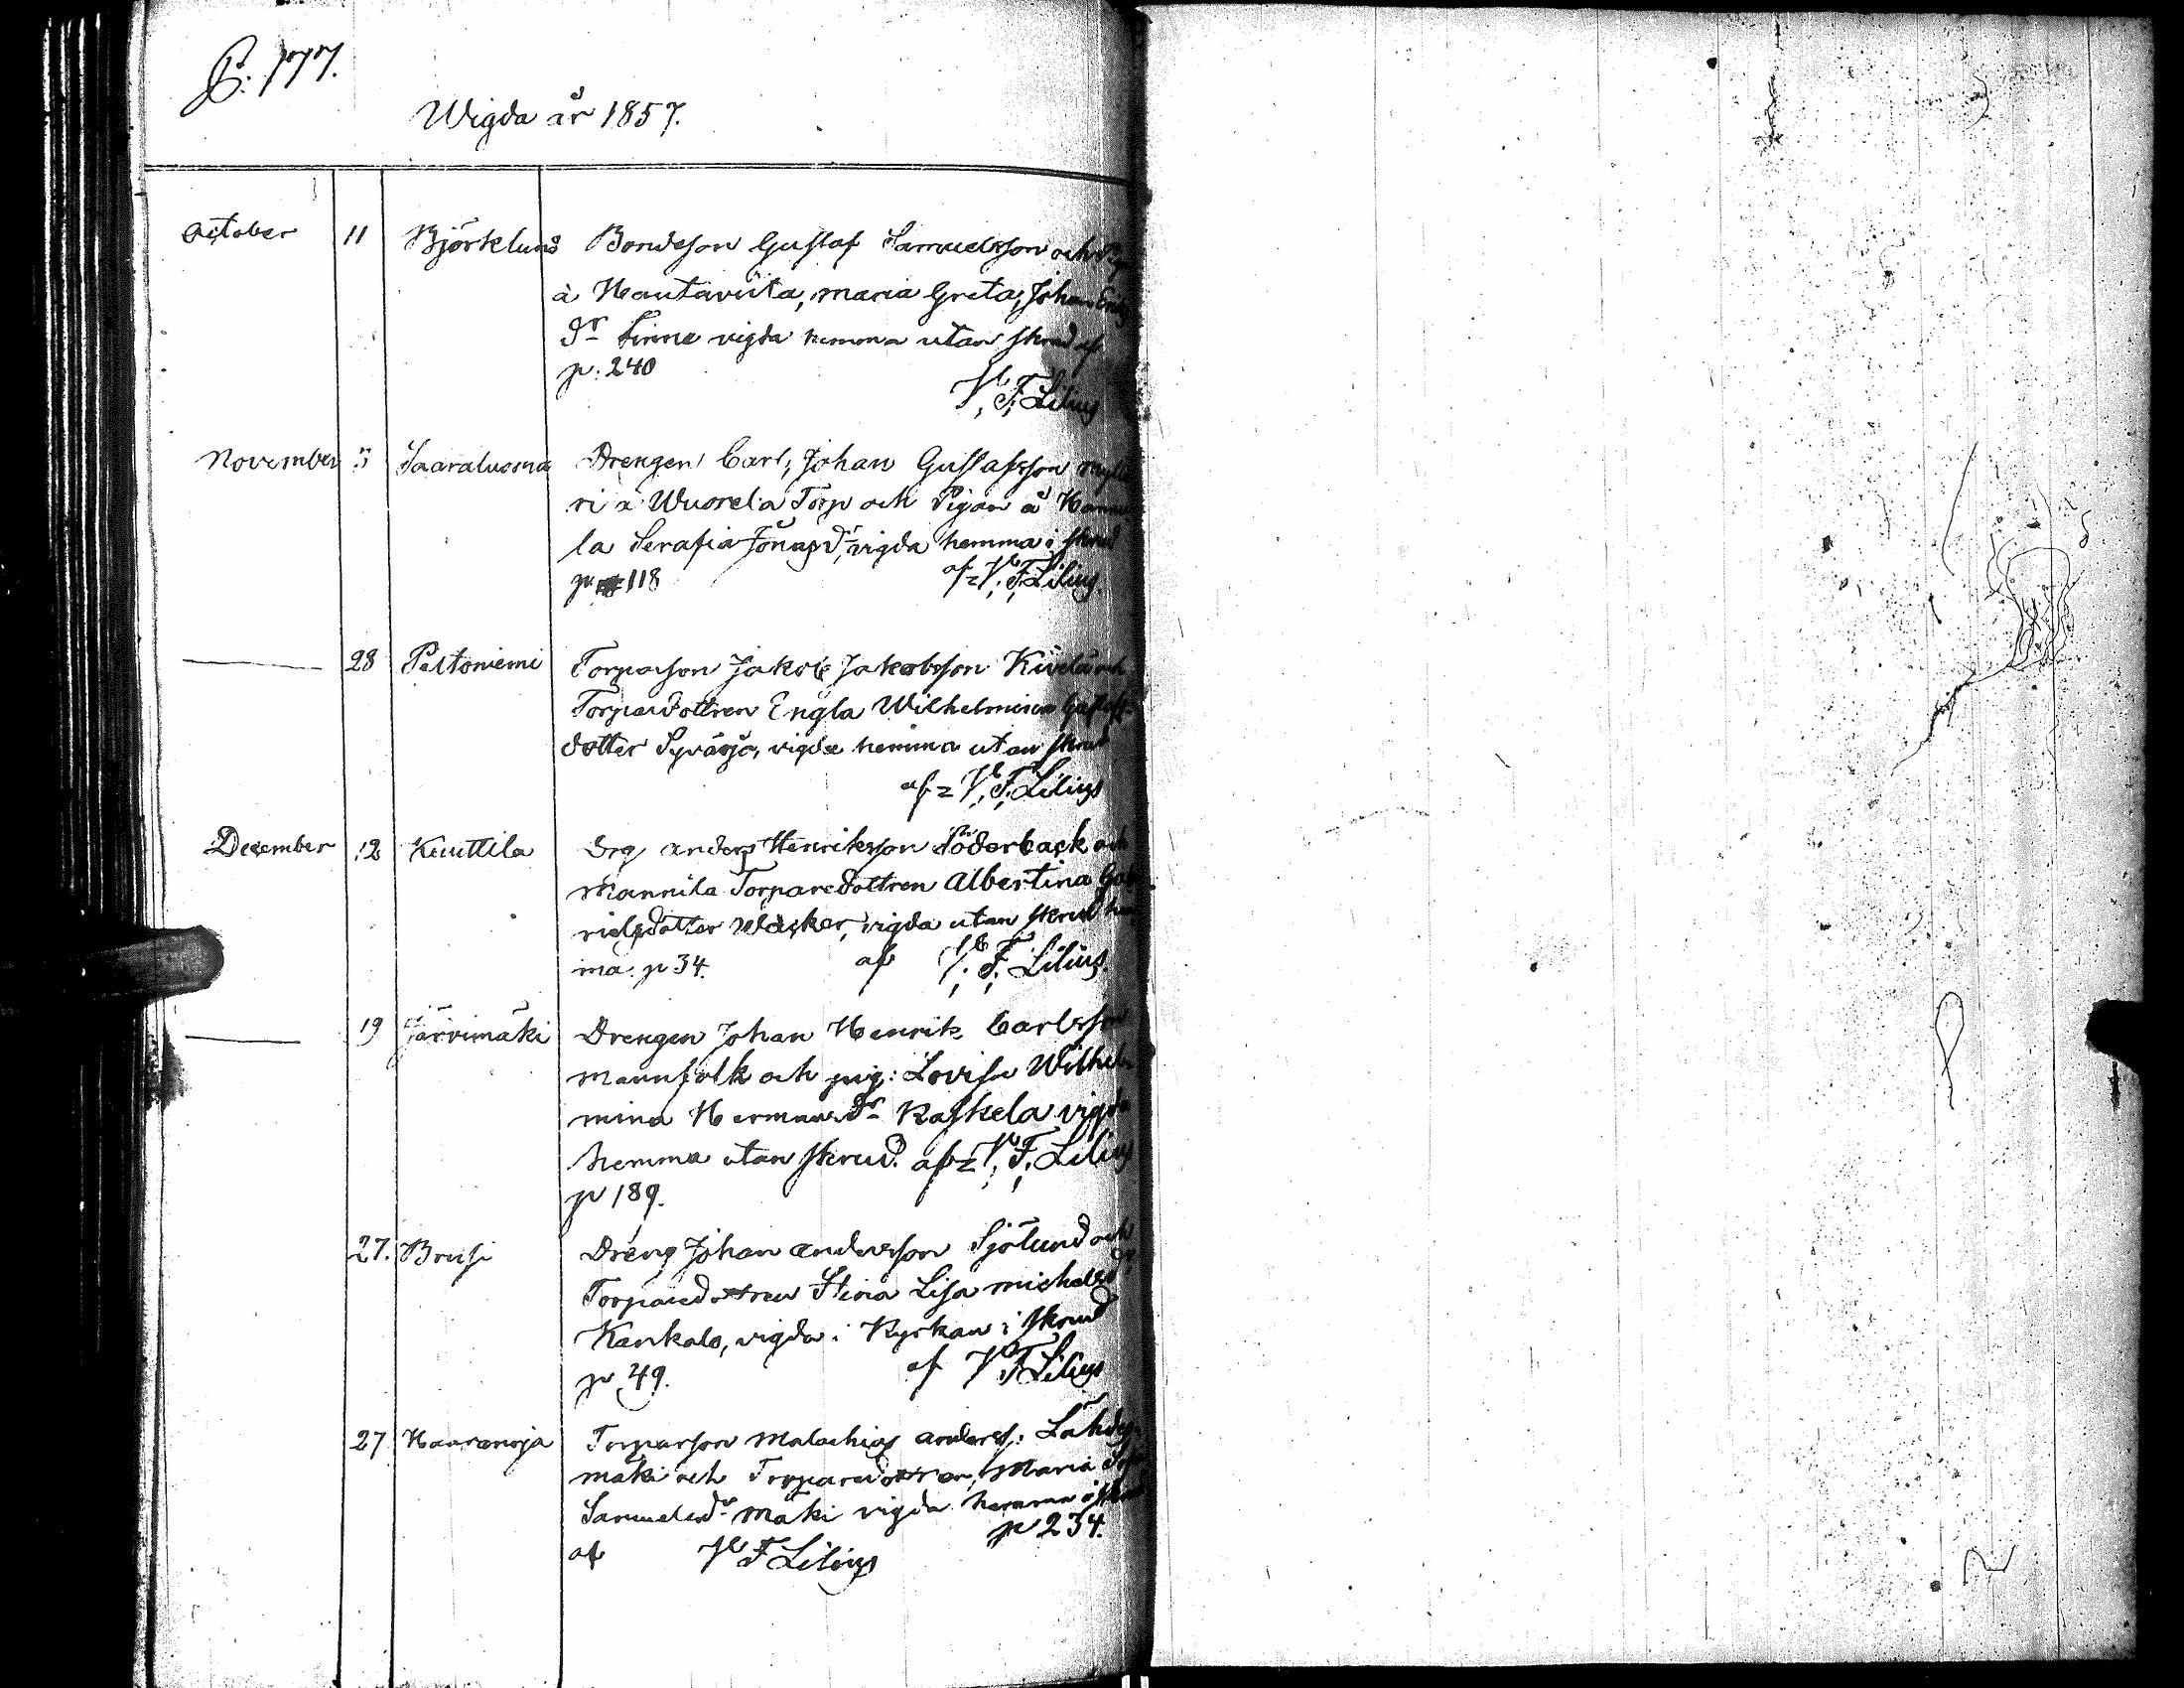 S: 777.
Wigda år 1857.
October 11 Björklund Bondeson Gustaf Samuelsson och
à Hautaviita, Maria Greta, Johan
dr Sinne vigda hemma utan skrud af
p: 240
V. F. Lilius
November 5 Saaraluoma Drengen Carl, Johan Gustafsson
ri à Wuorela Torp och Pigan å
la Serafia Jonasdr, vigda hemma i skrud
p 118 af V. F. Lilius.
28 Peltoniemi Torparson Jakob Jakobsson Kivelä och
Torparedottren Engla Wilhelmina Gustafs-
dotter Syväoja, vigda hemma utan skrud
af V. F. Lilius
December 12 Knuttila Drg Anders Henriksson Söderback och
Mannila Torparedottren Albertina Gab-
rielsdotter Wäcker, vigda utan skrud hem
ma. p 34. af V. F. Lilius.
19 Järvimäki Drengen Johan Henrik Carlsson
Mannfolk och pig: Lovisa Wilhel
mina Hermansdr Kaskela vigda
hemma utan skrud. af V. F. Lilius
p 189.
27. Brusi Dreng Johan Andersson Sjölund och
Torparedottren Stina Lisa Michelsdr
Kankalo, vigda i Kyrkan i skrud
p 49. af V F Lilius
27 Haaranoja Torparson Malachias Anders: Lähdes
mäki och Torparedottren, Maria
Samuelsdr Mäki vigda hemma i skrud
p 234.
af V F Lilius